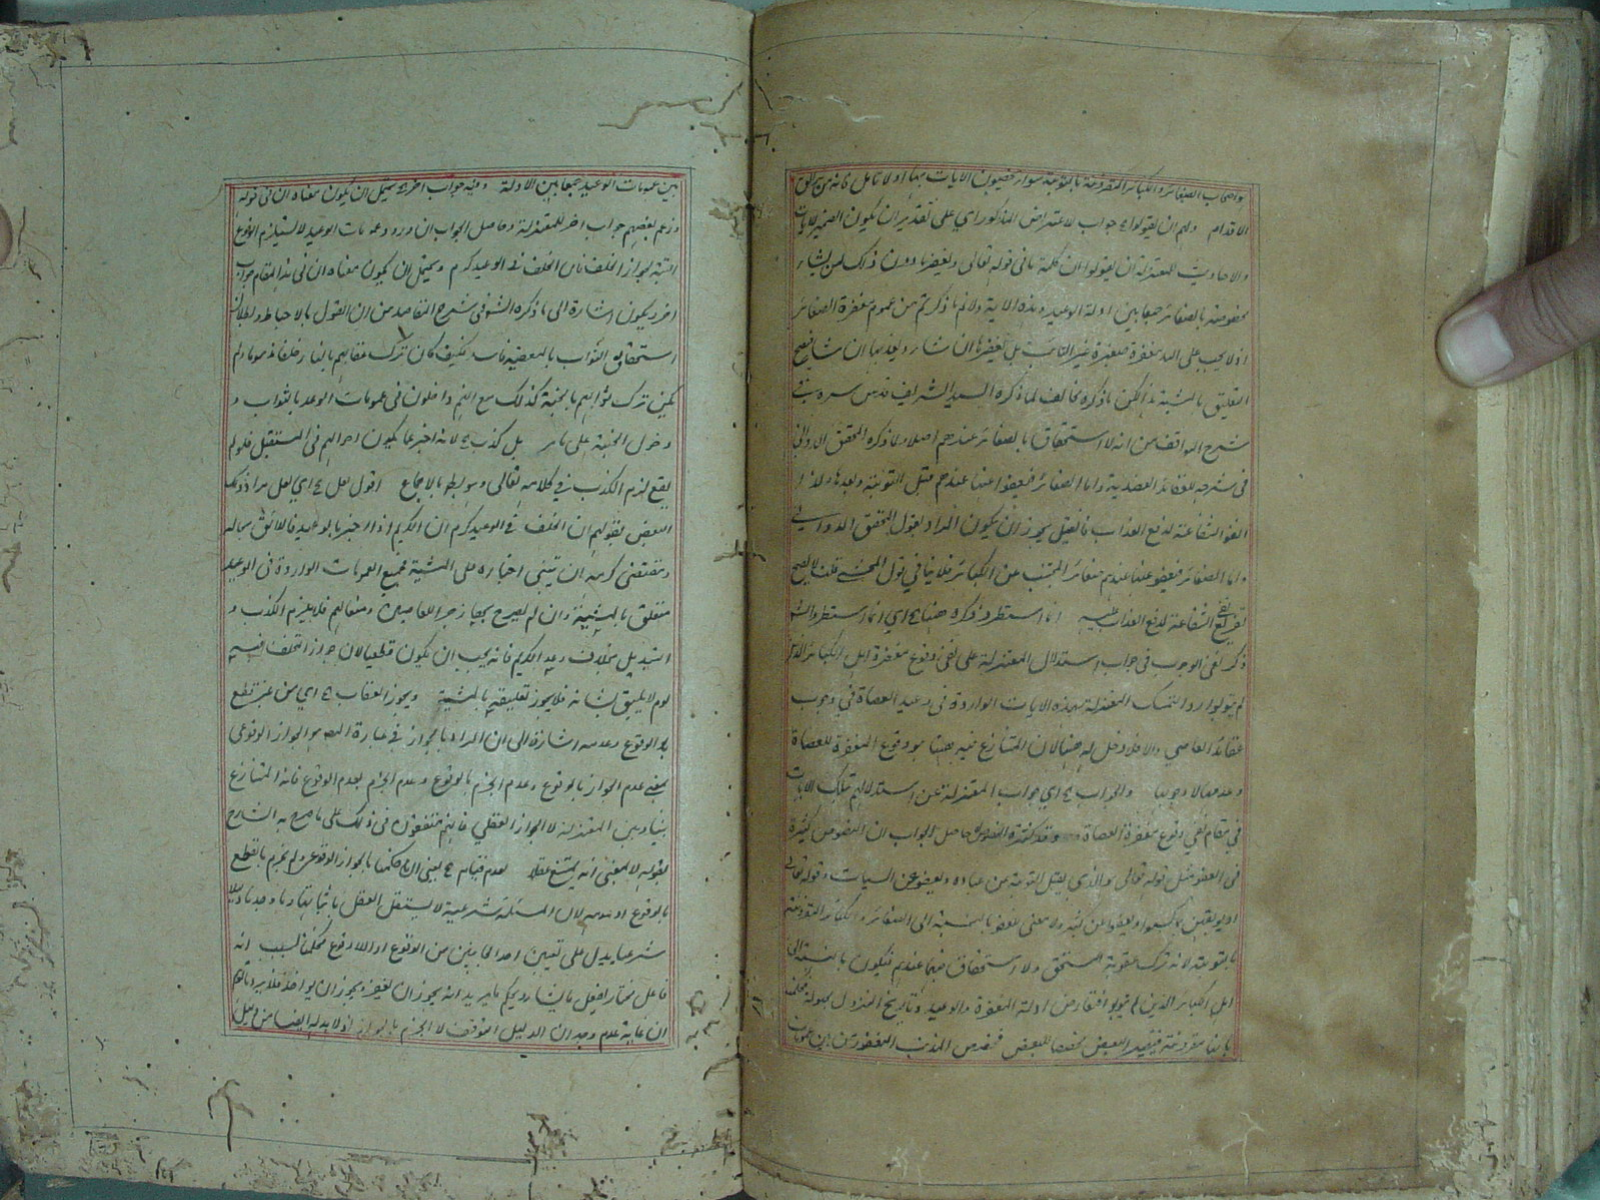 باصحاب الصغائر والكبائر المقرونة بالتوبة سواء خصوا الايات بها او لا تامل فانه من مزالق
الاقدام ولهم ان يقولوا جواب للاعتراض المذكور اي على تقدير ان يكون الضمير للايات
والاحاديث للمعتزلة ان يقولوا ان كلمة ما في قوله تعالى ويغفر ما دون ذلك لمن يشاء
مخصوصة بالصغائر جمعا بين ادلة الوعيد وهذه الاية ولانم ما ذكرتم من عموم مغفرة الصغائر
اذ لا يجب على الله مغفرة صغيرة غير التائب بل يغفرها ان شاء ويعذبها ان شاء فيصح
التعليق بالمشية لكن ما ذكره مخالف لما ذكره السيد الشريف قدس سره في
شرح المواقف من انه لا استحقاق بالصغائر عندهم اصلا ولما ذكره المحقق الدواني
في شرحه للعقائد العضدية واما الصغائر فيعفوا عنها عندهم قبل التوبة وبعدها
العفو الشفاعة لدفع العذاب فان قيل يجوز ان يكون المراد بقول المحقق الدواني
واما الصغائر فيعفو عنها عندهم صغائر المجتنب عن الكبائر فلا ينافي قول المحشي قلت لا يصح
نفي الشفاعة لدفع العذاب انما استطرد ذكره هنا اي انما استطرد الشارح
ذكر نفي الوجوب في جواب استدلال المعتزلة على نفي وقوع مغفرة اهل الكبائر الذين
لم يتوبوا رد التمسك المعتزلة بهذه الايات الواردة في وعيد العصاة في وجوب
عقاب العاصي والا فلا دخل له ههنا لان المتنازع فيه ههنا هو وقوع المغفرة للعصاة
وعدمها لا وجوبها والجواب اي جواب المعتزلة عن استدلالهم بتلك الايات
في مقام نفي وقوع مغفرة العصاة وقد كثرت النصوص حاصل الجواب ان النصوص كثيرة
في العفو مثل قوله تعالى والذي يقبل التوبة من عباده ويعفو عن السيات وقوله تعالى
او يوبقهن بما كسبوا ويعفوا عن كثير ولا معنى للعفو بالنسبة الى الصغائر والكبائر المقرونة
بالتوبة لانه ترك عقوبة المستحق ولا استحقاق فيهما عندهم فيكون بالنسبة الى
اهل الكبائر الذين لم يتوبوا من ادلة المغفرة والوعيد وتاريخ النزول مجهولة
بانها مقرونة فيقيد البعض مخصصا للبعض فخصص المذنب المغفور من بين
بين عمومات الوعيد جمعا بين الادلة وفيه جواب اخر يحتمل ان يكون معناه ان في قوله
وزعم بعضهم جواب اخر للمعتزلة وحاصل الجواب ان ورود عمومات الوعيد لا يستلزم الوقوع
البتة لجواز الخلف فان الخلف في الوعيد كرم ويحتمل ان يكون معناه ان في هذا المقام جواب
اخر ويكون اشارة الى ما ذكره الش في شرح المقاصد من ان القول بالاحباط وبطلان
استحقاق الثواب بالمعصية فاسد فكيف كان ترك عقابهم بالنار خلفا مذموما ولم
يكن ترك ثوابهم بالجنة كذلك مع انهم داخلون في عمومات الوعد بالثواب و
دخول الجنة على ما مر بل كذب لانه اخبر عما يكون احوالهم في المستقبل فلو لم
يقع لزم الكذب في كلامه تعالى وهو باطل بالاجماع اقول لعل اي لعل مراد ذلك
البعض بقولهم ان الخلف في الوعيد كرم ان الكريم اذا اخبر بالوعيد فاللائق بحاله
ومقتضى كرمه ان يبتني اخباره على المشية فجميع العمومات الواردة في الوعيد
متعلق بالمشية وان لم يصرح بها زجرا للعاصين ومنعا لهم فلا يلزم الكذب و
التبديل بخلاف وعد الكريم فانه يجب ان يكون قطعيا لان جواز التخلف فيه
لوم لا يليق بشانه فلا يجوز تعليقه بالمشية ويجوز العقاب اي من غير قطع
بالوقوع وعدمه اشارة الى ان المراد بالجواز في عبارة المص هو الجواز الوقوعي
بمعنى عدم الجواز بالوقوع وعدم الجزم بالوقوع وعدم الجزم بعدم الوقوع فانه المتنازع
بيننا وبين المعتزلة لا الجواز العقلي فانهم متفقون في ذلك على ما صرح به الشارح
بقوله لا بمعنى انه يمتنع عقلا لعدم قيام يعني انا حكمنا بالجواز الوقوعي ولم نجزم بالقطع
بالوقوع او عدمه لان المسئلة شرعية لا يستقل العقل باثباتها وما وجدنا دليلا
شرعيا يدل على تعيين احد الجانبين من الوقوع او اللاوقوع فحكمنا بسبب انه
فاعل مختار يفعل ما يشاء ويحكم ما يريد انه يجوز ان يغفر ويجوز ان يواخذ فلا يرد ما قيل
ان غاية عدم وجدان الدليل التوقف لا الجزم بالجواز اذ لا بد له ايضا من دليل